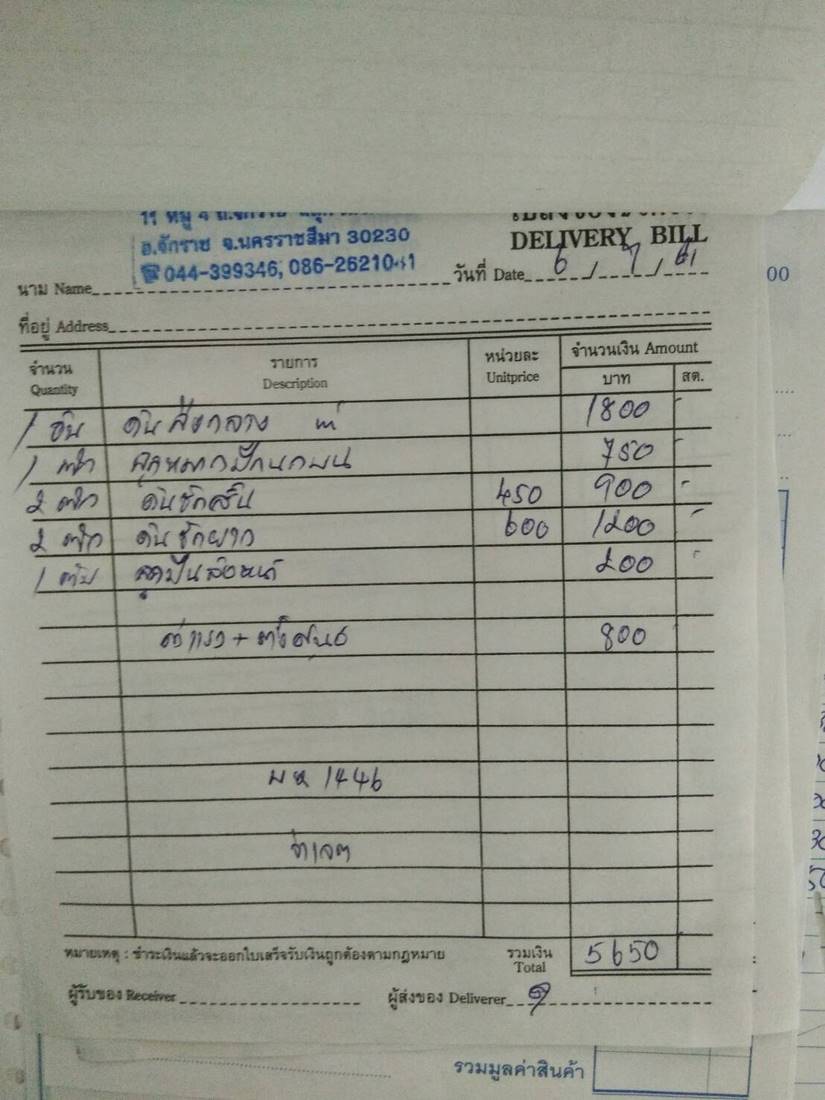 อ.จักราช จ.นครราชสีมา 30230
ใบส่งของชั่วคราว
DELIVERY BILL
☎044-399346, 086-2621041
นาม Name
วันที่ Date 6 / 7 / 61
ที่อยู่ Address
จำนวน รายการ หน่วยละ จำนวนเงิน Amount
Quantity Description Unitprice บาท สต.
1 อัน คันส่งกลาง 1800 -
1 ตัว ลูกหมากปีกนกบน 750 -
2 ตัว คันชักสั้น 450 900 -
2 ตัว คันชักยาว 600 1200 -
1 200 -
ค่าแรง + ตั้งศูนย์ 800
1446
รวมเงิน 5650
หมายเหตุ : ชำระเงินแล้วจะออกใบเสร็จรับเงินถูกต้องตามกฎหมาย
Total
ผู้รับของ Receiver ผู้ส่งของ Deliverer
รวมมูลค่าสินค้า
00